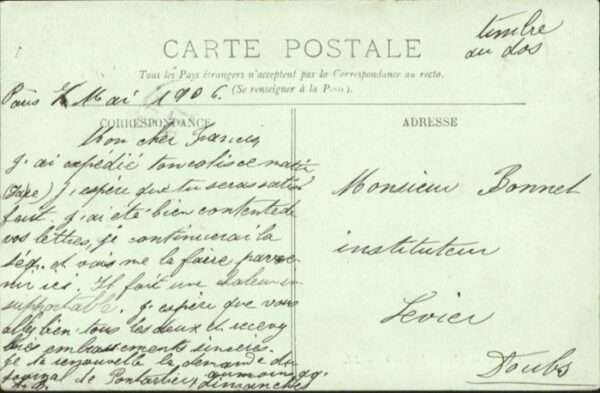 timbre
au dos
CARTE POSTALE
Tous les Pays étrangers n'acceptent pas la Correspondance au recto.
(Se renseigner à la Poste).
Paris Mai 1906.
CORRESPONDANCE
ADRESSE
Mon cher Francis
J'ai expédié ton colis ce matin
J'espère que tu seras satis
fait. J'ai été bien contente de
vos lettres, je continuerai la
et vais me la faire parve
nir ici. Il fait une chaleur in
supportable. J'espère que vous
allez bien tous les deux et recevez
mes embrassements sincères.
Je te renouvelle la demande du
journal de Pontarlier, au moins
dimanche
Monsieur Bonnet
instituteur
Levier
Doubs